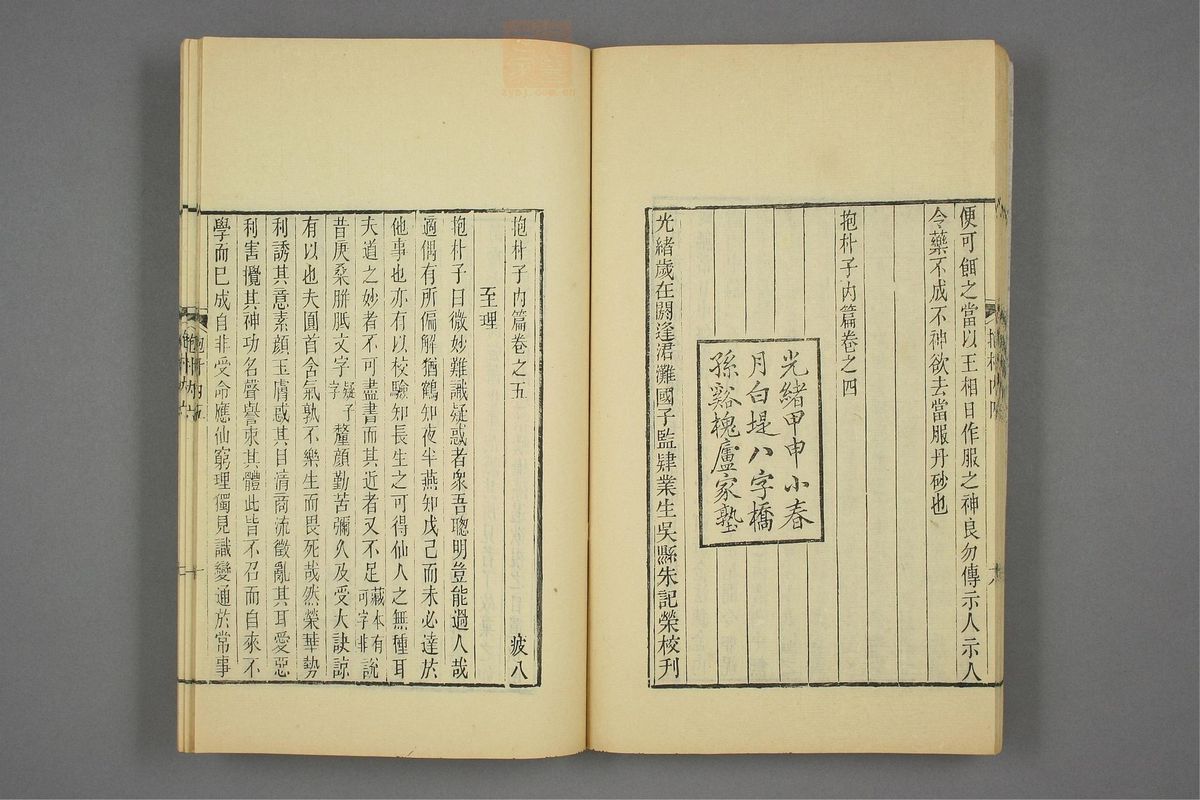 便可餌之當以王相日作服之神良勿傳示人示人
令藥不成不神欲去當服丹砂也
抱朴子內篇卷之四
光緒甲申小春
月白堤八字橋
孫谿槐廬家塾
光緒歲在閼逢涒灘國子監肄業生吳縣朱記榮校刊
抱朴子內篇卷之五
疲八
至理
抱朴子曰微妙難識疑惑者衆吾聰明豈能過人哉
適偶有所偏解猶鶴知夜半燕知戊己而未必達於
他事也亦有以校驗知長生之可得仙人之無種耳
夫道之妙者不可盡書而其近者又不足藏本有可字非說
昔庚桑胼胝文字疑子字釐顏勤苦彌久及受大訣諒
有以也夫圓首含氣孰不樂生而畏死哉然榮華勢
利誘其意素顏玉膚惑其目清商流徵亂其耳愛惡
利害攪其神功名聲譽束其體此皆不召而自來不
學而已成自非受命應仙窮理獨見識變通於常事